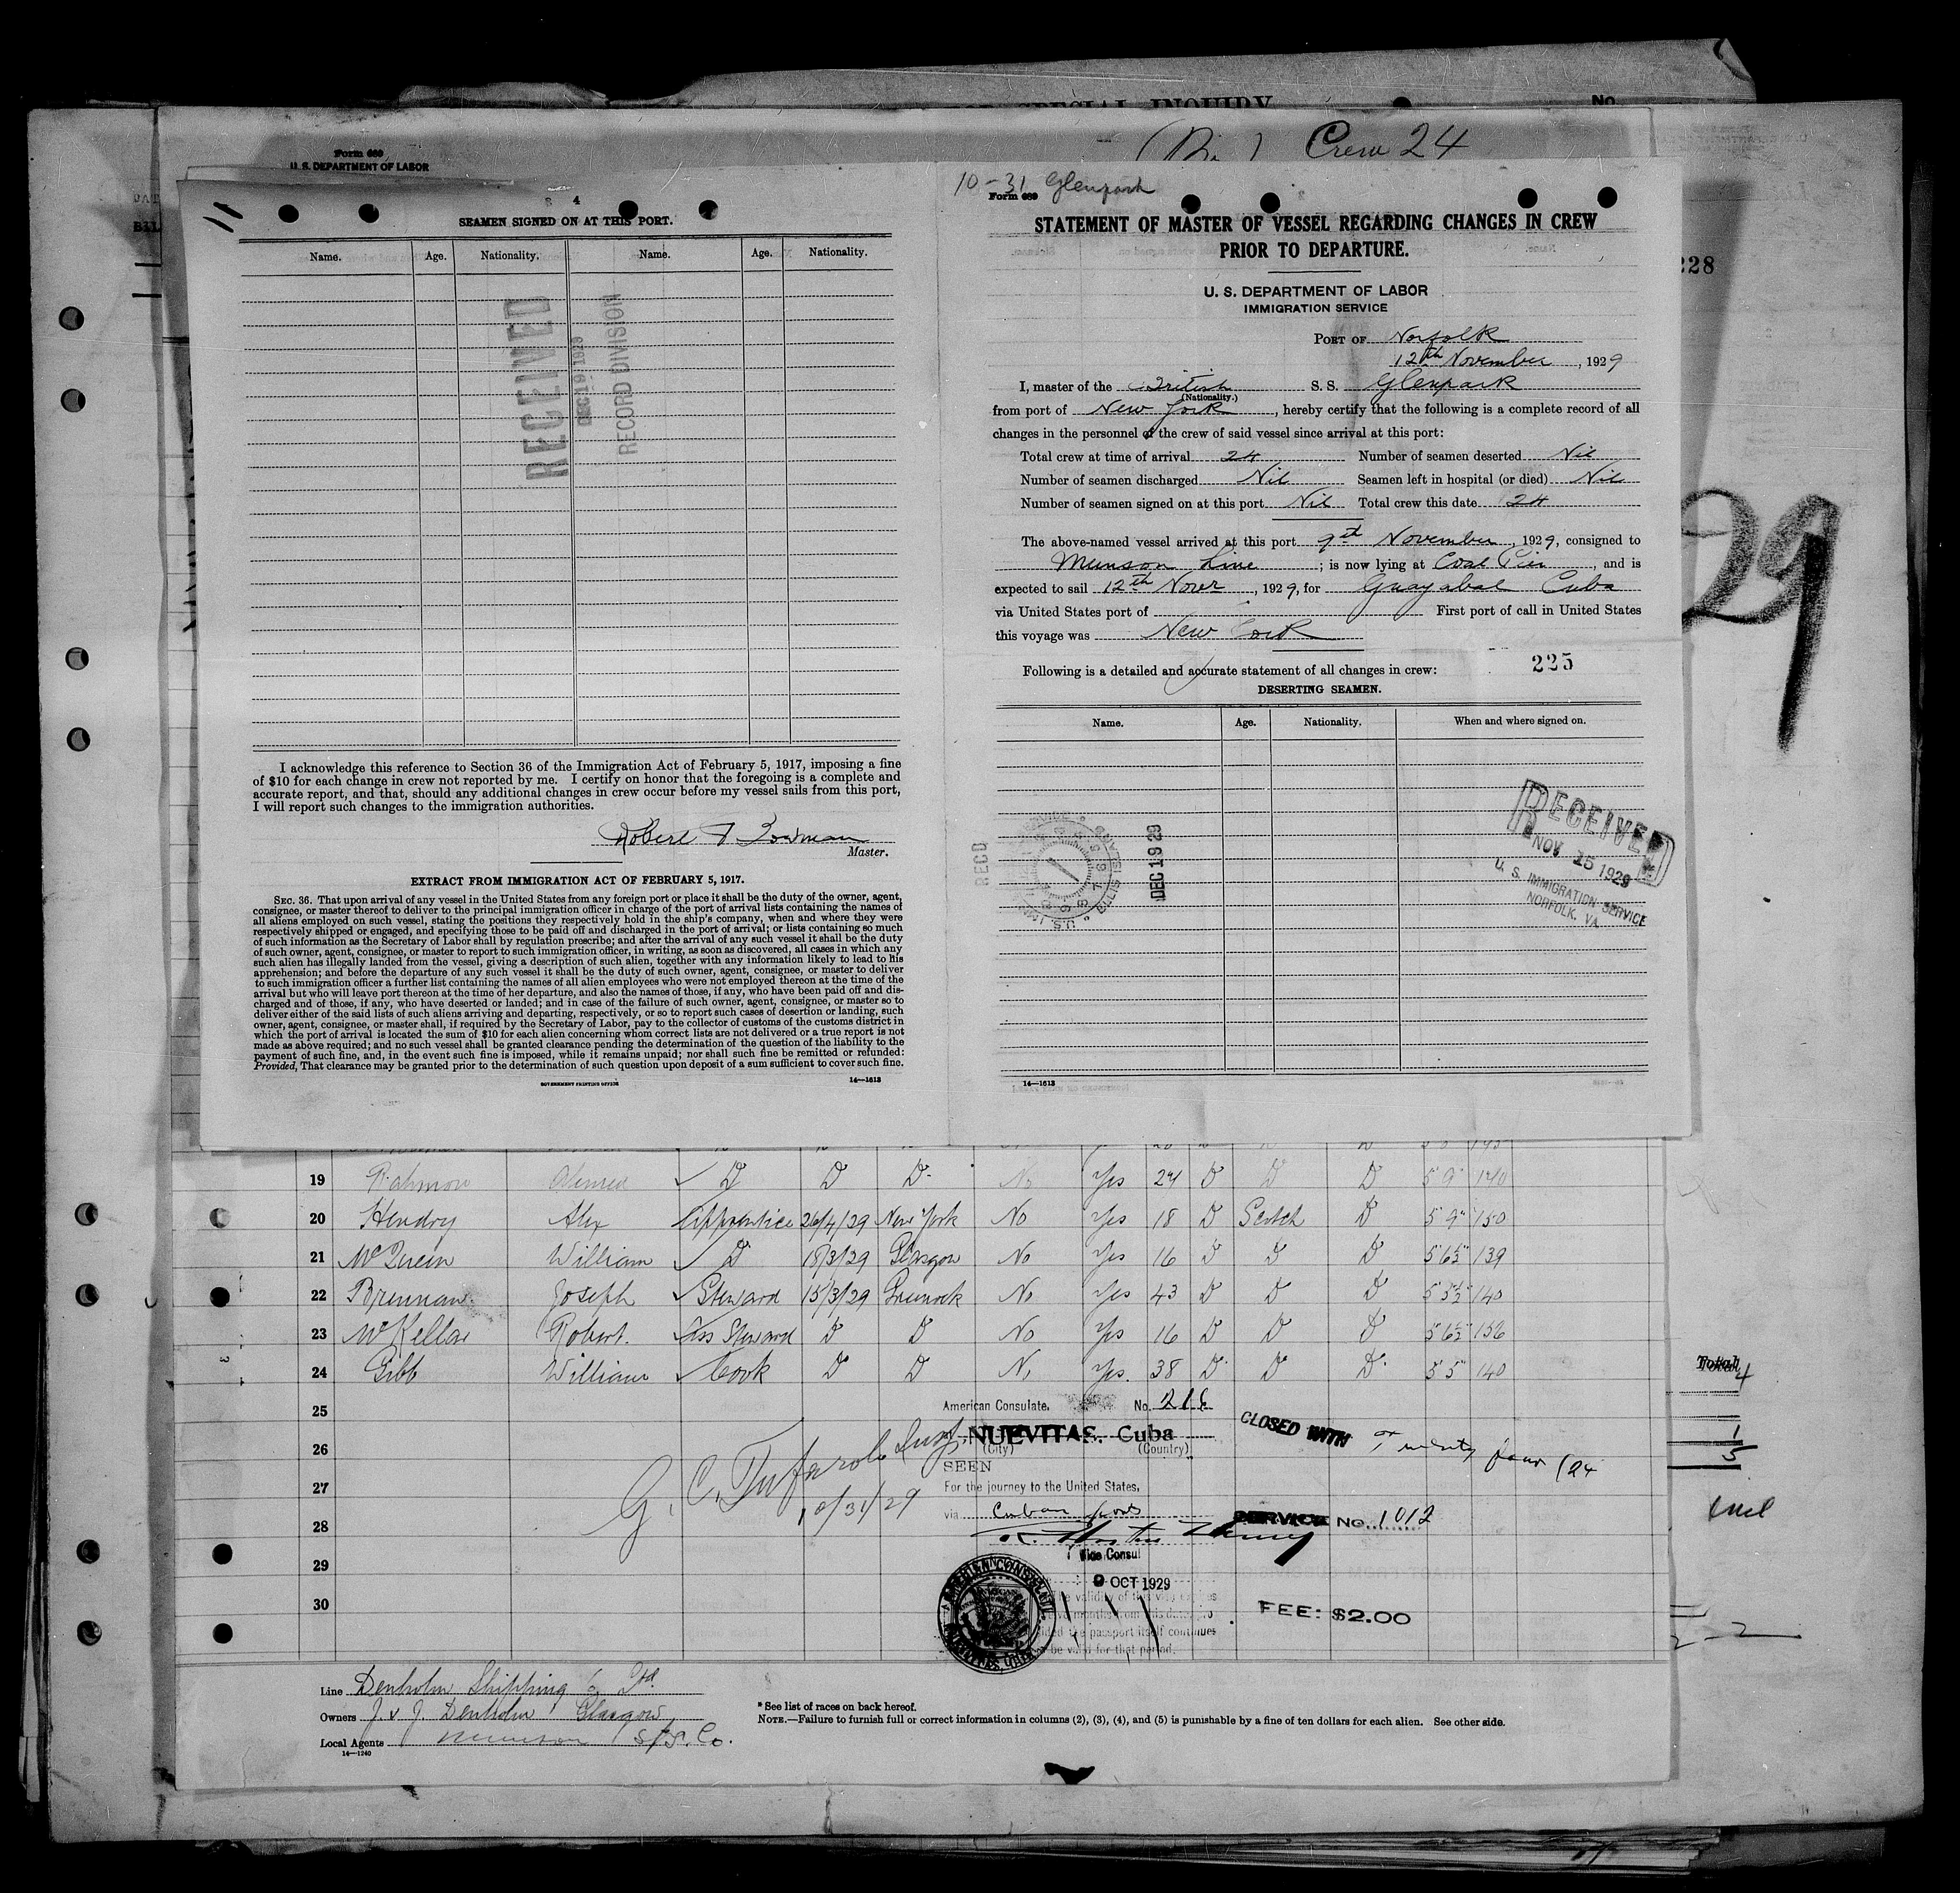 SPECIAL INQUIRY
No.
Crew 24
Form 689
U. S. DEPARTMENT OF LABOR
4
SEAMEN SIGNED ON AT THIS PORT.
Name. Age. Nationality. Name. Age. Nationality.
RECEIVED
DEC 19 1929
RECORD DIVISION
I acknowledge this reference to Section 36 of the Immigration Act of February 5, 1917, imposing a fine
of $10 for each change in crew not reported by me. I certify on honor that the foregoing is a complete and
accurate report, and that, should any additional changes in crew occur before my vessel sails from this port,
I will report such changes to the immigration authorities.
Robert
Master.
EXTRACT FROM IMMIGRATION ACT OF FEBRUARY 5, 1917.
SEC. 36. That upon arrival of any vessel in the United States from any foreign port or place it shall be the duty of the owner, agent,
consignee, or master thereof to deliver to the principal immigration officer in charge of the port of arrival lists containing the names of
all aliens employed on such vessel, stating the positions they respectively hold in the ship's company, when and where they were
respectively shipped or engaged, and specifying those to be paid off and discharged in the port of arrival; or lists containing so much
of such information as the Secretary of Labor shall by regulation prescribe; and after the arrival of any such vessel it shall be the duty
of such owner, agent, consignee, or master to report to such immigration officer, in writing, as soon as discovered, all cases in which any
such alien has illegally landed from the vessel, giving a description of such alien, together with any information likely to lead to his
apprehension; and before the departure of any such vessel it shall be the duty of such owner, agent, consignee, or master to deliver
to such immigration officer a further list containing the names of all alien employees who were not employed thereon at the time of the
arrival but who will leave port thereon at the time of her departure, and also the names of those, if any, who have been paid off and dis-
charged and of those, if any, who have deserted or landed; and in case of the failure of such owner, agent, consignee, or master so to
deliver either of the said lists of such aliens arriving and departing, respectively, or so to report such cases of desertion or landing, such
owner, agent, consignee, or master shall, if required by the Secretary of Labor, pay to the collector of customs of the customs district in
which the port of arrival is located the sum of $10 for each alien concerning whom correct lists are not delivered or a true report is not
made as above required; and no such vessel shall be granted clearance pending the determination of the question of the liability to the
payment of such fine, and, in the event such fine is imposed, while it remains unpaid; nor shall such fine be remitted or refunded:
Provided, That clearance may be granted prior to the determination of such question upon deposit of a sum sufficient to cover such fine.
GOVERNMENT PRINTING OFFICE 14—1613
10-31 Glenpark
Form 689
STATEMENT OF MASTER OF VESSEL REGARDING CHANGES IN CREW
PRIOR TO DEPARTURE.
U. S. DEPARTMENT OF LABOR
IMMIGRATION SERVICE
PORT OF Norfolk
12th November, 1929
I, master of the British S. S. Glenpark
(Nationality.)
from port of New York, hereby certify that the following is a complete record of all
changes in the personnel of the crew of said vessel since arrival at this port:
Total crew at time of arrival 24 Number of seamen deserted Nil
Number of seamen discharged Nil Seamen left in hospital (or died) Nil
Number of seamen signed on at this port Nil Total crew this date 24
The above-named vessel arrived at this port 9th November, 1929, consigned to
Munson Line; is now lying at Coal Pier, and is
expected to sail 12th Novr, 1929, for Guayabal Cuba
via United States port of First port of call in United States
this voyage was New York
Following is a detailed and accurate statement of all changes in crew: 225
DESERTING SEAMEN.
Name. Age. Nationality. When and where signed on.
RECD
DEC 19 29
RECEIVED
NOV 15 1929
U. S. IMMIGRATION SERVICE
NORFOLK, VA.
14—1613
228
29
19 Rahmon Ahmed D D D No Yes 24 D D D 5 9 140
20 Hendry Alex Apprentice 26/4/29 New York No Yes 18 D Scotch D 5 9 150
21 William D 18/3/29 Glasgow No Yes 16 D D D 5 6½ 139
22 Brennan Joseph Steward 15/3/29 Greenock No Yes 43 D D D 5 5½ 140
23 McKellar Robert. Ass Steward D D No Yes 16 D D D 5 6½ 156
24 Gibb William Cook D D No Yes. 38 D D D 5 5 140
25
26
27
28
29
30
American Consulate. No. 216
NUEVITAS, Cuba
(City) (Country)
SEEN
For the journey to the United States,
via Cuban ports
Vice Consul
9 OCT 1929
The validity of this visa expires
months from this date, pro-
vided the passport itself continues
to be valid for that period.
CLOSED WITH Twenty four (24
SERVICE No. 1012
FEE: $2.00
10/31/29
Total
Line Denholm Shipping Co Ltd.
Owners J. & J. Denholm Glasgow
Local Agents Munson S/S. Co.
14—1240
* See list of races on back hereof.
NOTE.—Failure to furnish full or correct information in columns (2), (3), (4), and (5) is punishable by a fine of ten dollars for each alien. See other side.